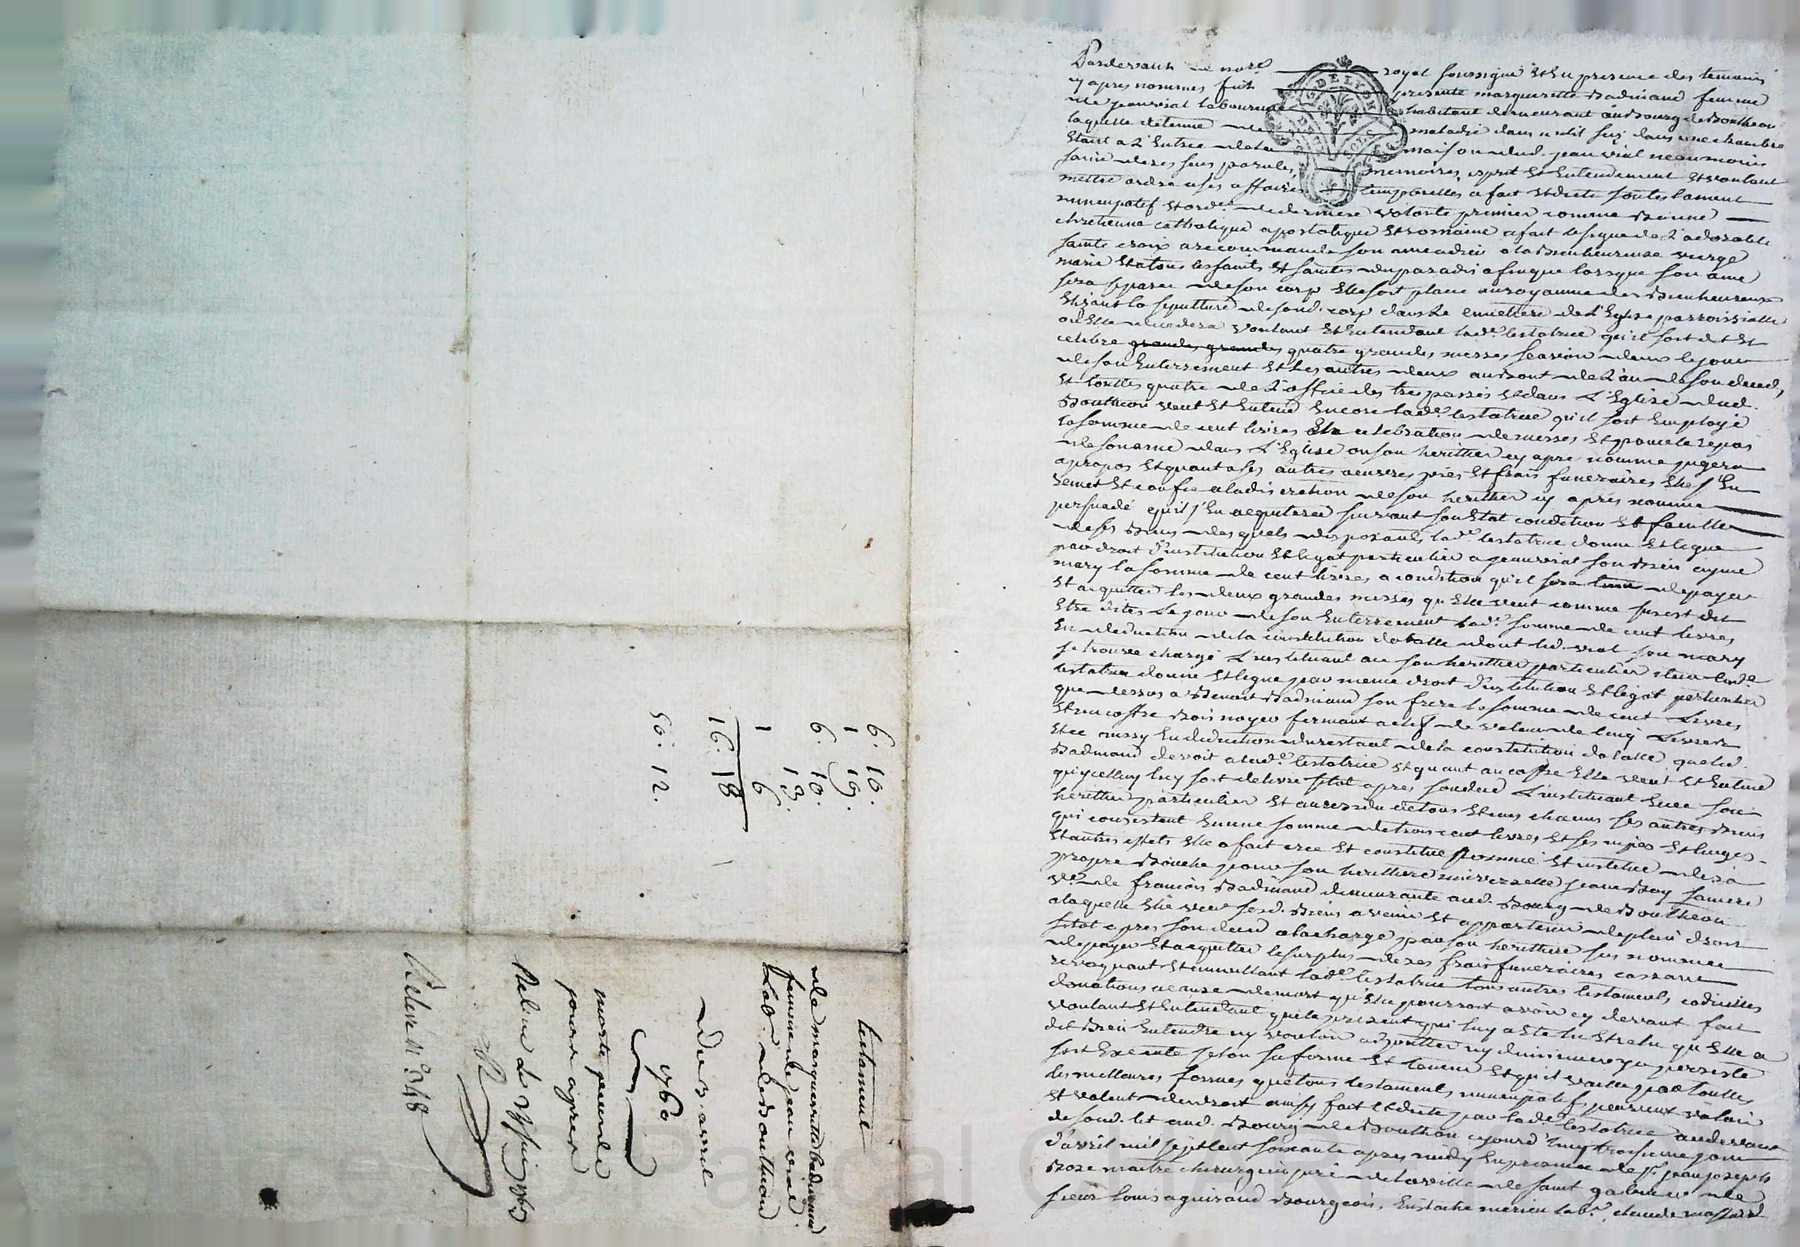 Pardevant le no.re royal soussigné Et En presence des temoins
cy apres nommés fut presente margueritte Badinand femme
de jean vial laboureur habitant demeurant au Bourg de Boutheon
laquelle detenue de maladie dans un lit sis dans une chambre
Etant a l'Entrée de la maison dud. jean vial neanmoins
saine de ses sens parole, memoires, esprit Et Entendement Et voulant
mettre ordre a ses affaires temporelles a fait Et dicté son testament
nuncupatif Et ord.re de derniere volonté premier comme Bonne
chretienne catholique apostolique Et romaine a fait le signe de l'adorable
sainte croix a recommandé son ame a dieu a la Bienheureuse vierge
marie Et a tous les saints Et saintes du paradis afin que lorsque son ame
sera separée de son corp Elle soit placée au royaume des Bienheureux
Elisant la sepulture de sond. corp dans Le cimetiere de l'Eglise parroissialle
où Elle decedera voulant Et Entendant lad.e testatrice qu'il soit dit Et
celebré grandes grandes quatre grandes messes scavoir deux le jour
de son Enterrement Et les autres deux au Bout de l'an de son deced,
Et touttes quatre de l'office des trepassés Et dans l'Eglise dud.
Boutheon veut Et Entend Encore lad.e testatrice qu'il soit Employé
la somme de cent livres En celebration de messes Et pour le repos
de son ame dans l'Eglise ou son herittier cy apres nommé jugera
apropos Et quant a ses autres oeuvres pies Et frais funeraires Elle s'En
remet Et confie a la discretion de son herittier cy après nommé
persuadé qu'il s'En acquittera suivant son Etat condition Et faculté
de ses Biens desquels disposant lad.e testatrice donne Et legue
par droit d'institution Et legat particulier a jean vial son Bien aymé
mary la somme de cent livres a condition qu'il sera tenu de payer
Et acquitter les deux grandes messes qu'Elle veut comme sus est dit
Etre dites Le jour de son Enterrement lad.e somme de cent livres
En deduction de la constitution dotalle dont led. vial son mary
se trouve chargé L'instituant En son herittier particulier item lad.e
testatrice donne Et legue par meme droit d'institution Et legat particulier
que dessus a Benoit Badinand son frere la somme de cent Livres
Et un coffre Bois noyer fermant a clef de valeur de cinq Livres
Et ce aussy En deduction du restant de la constitution dotalle que led.
Badinand devoit a lad.e testatrice Et quant au coffre Elle veut Et Entend
qu'icelluy luy soit delivré sitot apres son deced L'instituant En ce son
herittier particulier Et au residu de tous Et uns chacuns ses autres Biens
qui consistent En une somme de trois cent livres Et ses nipes Et linges
Et autres effets Elle a fait créé Et constitué nommé Et institué de sa
propre Bouche pour son herittiere universelle jeane Bay sa mere
v.e de françois Badinand demeurante aud. Bourg de Boutheon
a laquelle Elle veut sesd. Biens avenir Et appartenir de plein droit
sitot apres son deced a la charge par son herittiere sus nommée
de payer Et acquitter le surplus de ses frais funeraires cassant
revoquant Et annullant lad.e testatrice tous autres testaments, codicilles
donations a cause de mort qu'Elle pourroit avoir cy devant fait
voulant Et Entendant que le present qui luy a Eté lu Et relu qu'Elle a
dit Bien Entendre n'y vouloir adjoutter n'y diminuer n'y persiste
soit Executé selon sa forme Et teneur Et qu'il vaille par touttes
les meilleures formes que tous testaments nuncupatif peuvent valoir
Et valent de droit ainsy fait Et dicté par lad.e testatrice au devant
de sond. lit aud. Bourg de Boutheon ajourd'huy troisieme jour
d'avril mil sept cent soixante apres midy En presence de s.r jean joseph
Boze maitre chirurgien juré de la ville de saint galmier de
sieur louis aguiraud Bourgeois, Eustache merieu lab.r, claude massard
GEN. DE LYON
6. 16.
1 19.
6. 10.
13.
1 6
16. 18
50. 12.
testament
de marguerritte badinand
femme de jean vial
Lab.r de Boutheon
Du 3 avril
1760
morte peu de
jours apres
Relevé n.o 348